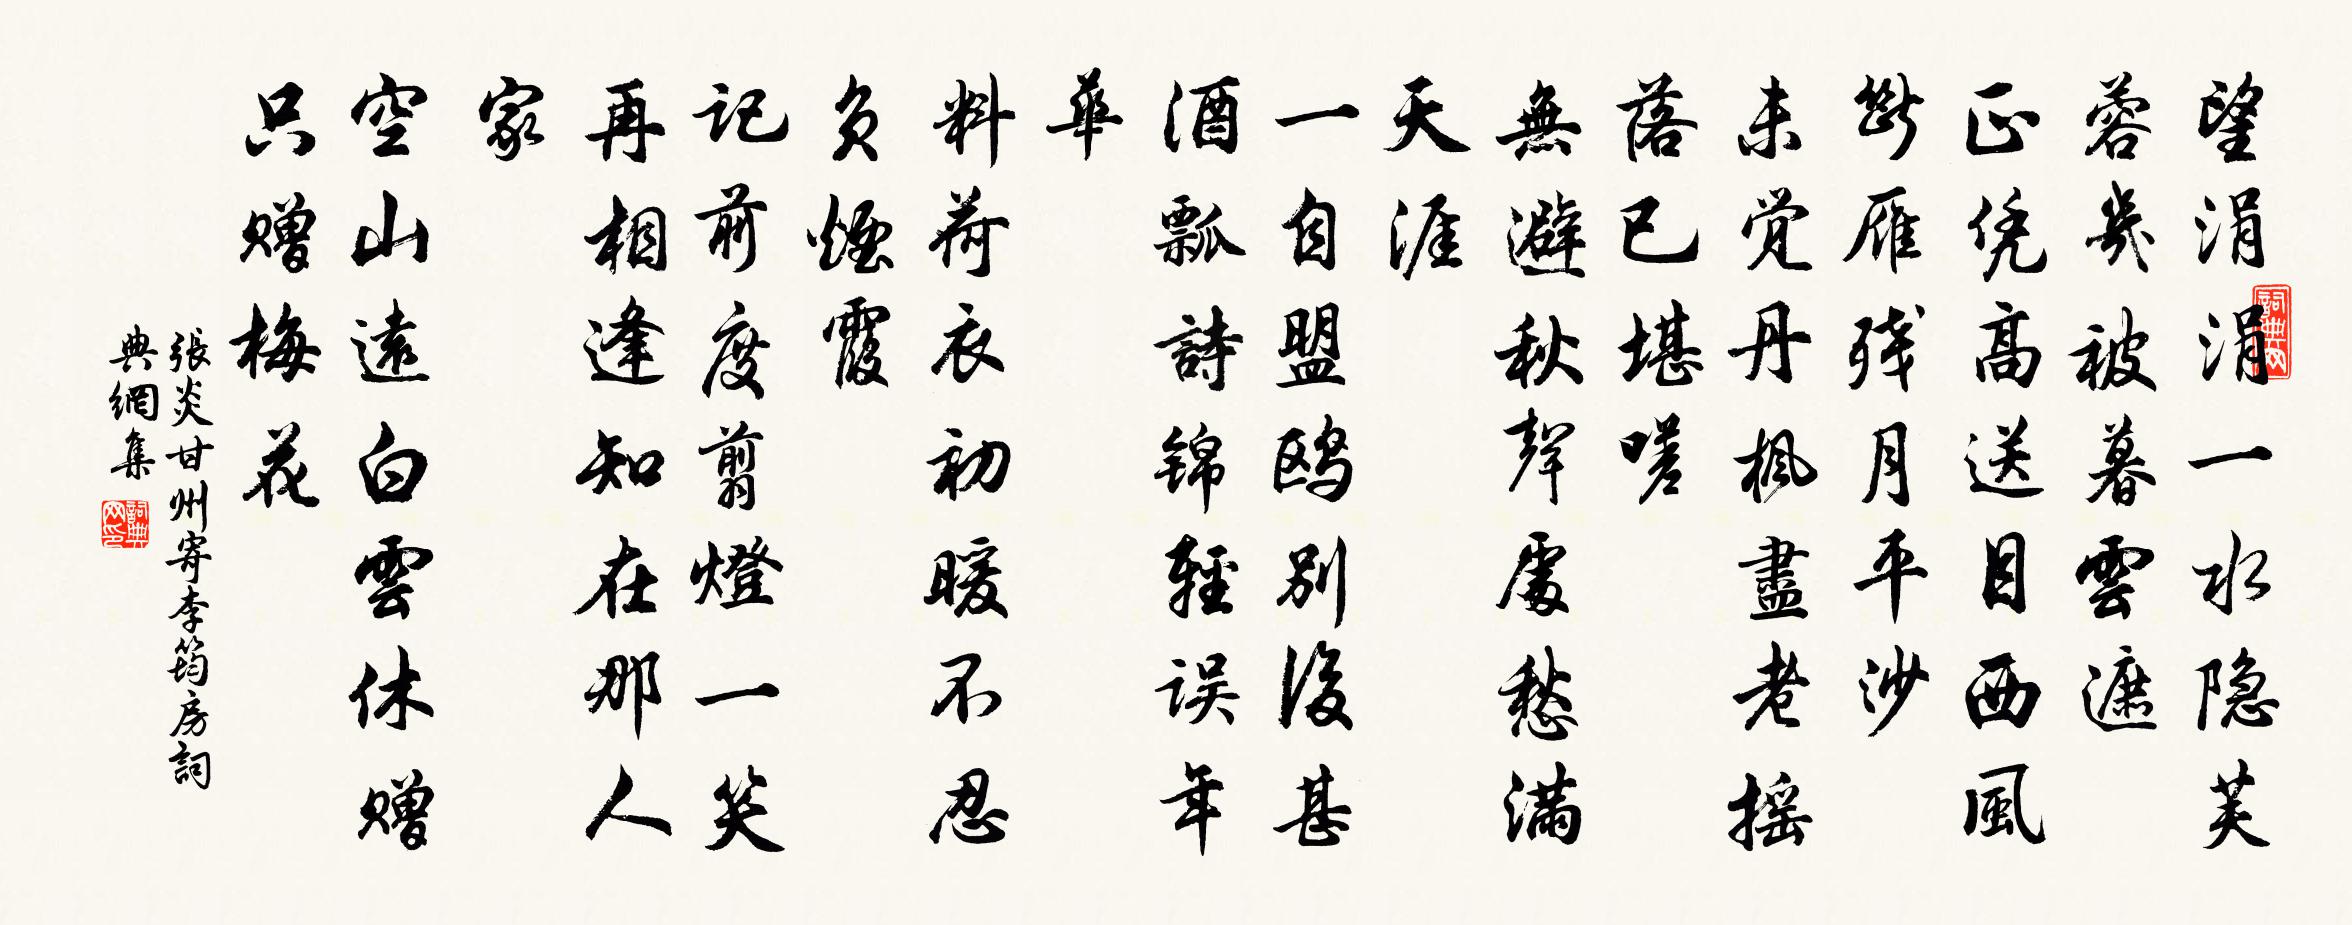 望涓涓一水隐芙
蓉幾被暮雲遮
正凭高送目西風
断雁残月平沙
未觉丹枫盡老摇
落已堪嗟
無避秋聲處愁满
天涯
一自盟鸥别後甚
酒瓢詩锦轻误年
華
料荷衣初暖不忍
负煙霞
记前度剪燈一笑
再相逢知在那人
家
空山遠白雲休赠
只赠梅花
張炎甘州寄李筠房詞
典網集
詞典网
詞典网印